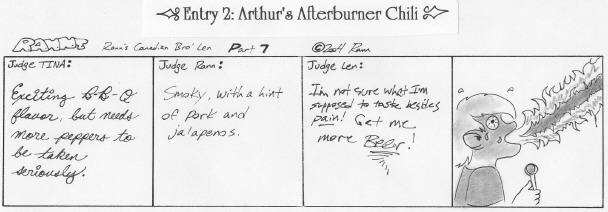 Entry 2: Arthur's Afterburner Chili
RANN'S Rann's Canadian Bro' Len Part 7 ©2004 Rann
Judge TINA:
Exciting B-B-Q
flavor, but needs
more peppers to
be taken
seriously.
Judge Rann:
Smoky, with a hint
of pork and
jalapenos.
Judge Len:
I'm not sure what I'm
supposed to taste besides
pain! Get me
more Beer!